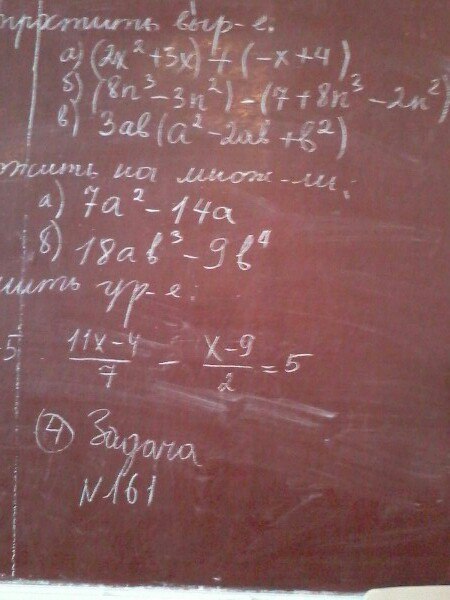 простить выр-е:
а) (2x² + 3x) + (-x + 4)
б) (8n³ - 3n²) - (7 + 8n³ - 2n²)
в) 3ab(a² - 2ab + b²)
ожить на множ-ли:
а) 7a² - 14a
б) 18ab³ - 9b⁴
шить ур-е:
5 (11x-4)/7 - (x-9)/2 = 5
④ Задача
N 161